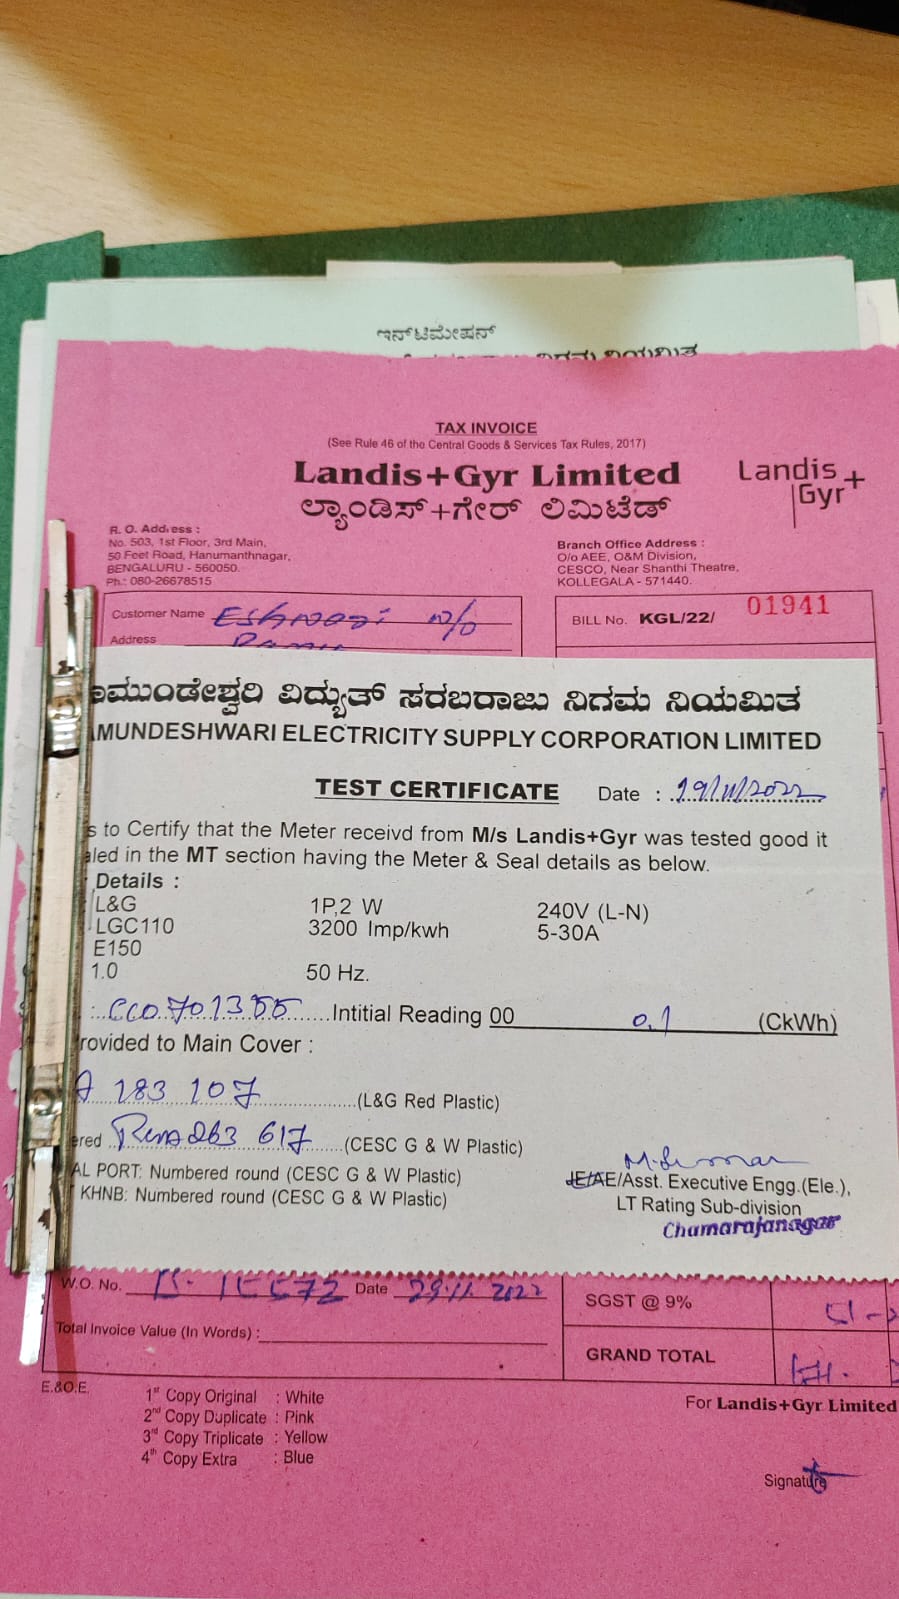 ಇನ್‌ಟಿಮೇಷನ್
ನಿಗಮ ನಿಯಮಿತ
TAX INVOICE
(See Rule 46 of the Central Goods & Services Tax Rules, 2017)
Landis+Gyr Limited
Landis+
Gyr
ಲ್ಯಾಂಡಿಸ್+ಗೇರ್ ಲಿಮಿಟೆಡ್
R. O. Address :
No. 503, 1st Floor, 3rd Main,
50 Feet Road, Hanumanthnagar,
BENGALURU - 560050.
Ph.: 080-26678515
Branch Office Address :
O/o AEE, O&M Division,
CESCO, Near Shanthi Theatre,
KOLLEGALA - 571440.
Customer Name
w/o
Address
BILL No. KGL/22/ 01941
ಾಮುಂಡೇಶ್ವರಿ ವಿದ್ಯುತ್ ಸರಬರಾಜು ನಿಗಮ ನಿಯಮಿತ
AMUNDESHWARI ELECTRICITY SUPPLY CORPORATION LIMITED
TEST CERTIFICATE
Date : 19/11/2022
s to Certify that the Meter receivd from M/s Landis+Gyr was tested good it
aled in the MT section having the Meter & Seal details as below.
Details :
L&G 1P,2 W 240V (L-N)
LGC110 3200 Imp/kwh 5-30A
E150
1.0 50 Hz.
: Intitial Reading 00 0.1 (CkWh)
rovided to Main Cover :
183 107 (L&G Red Plastic)
ered 263 617 (CESC G & W Plastic)
AL PORT: Numbered round (CESC G & W Plastic)
KHNB: Numbered round (CESC G & W Plastic)
JE/AE/Asst. Executive Engg.(Ele.),
LT Rating Sub-division
Chamarajanagar
W.O. No. Date 29.11.2022
SGST @ 9%
Total Invoice Value (In Words) :
GRAND TOTAL
E.&O.E.
1st Copy Original : White
2nd Copy Duplicate : Pink
3rd Copy Triplicate : Yellow
4th Copy Extra : Blue
For Landis+Gyr Limited
Signature